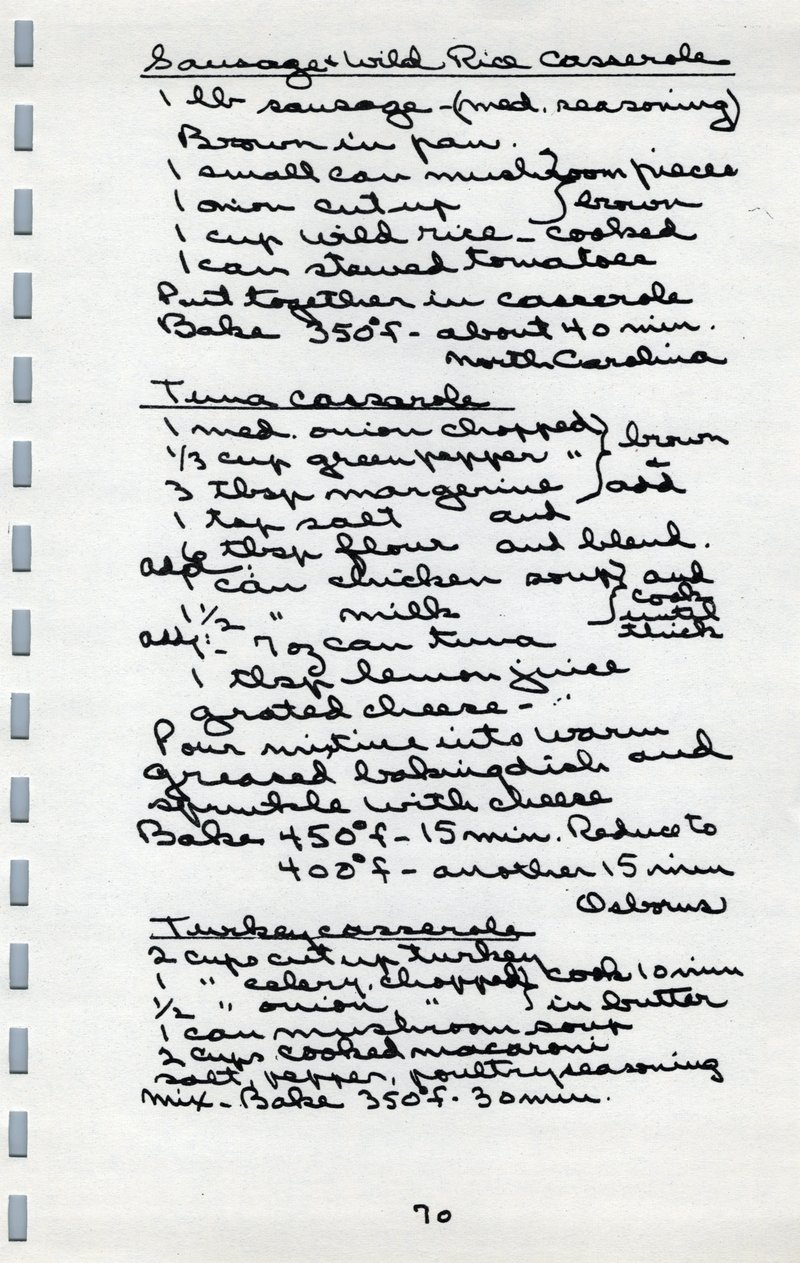 Sausage & Wild Rice Casserole
1 lb sausage - (med. seasoning)
Brown in pan.
1 small can mushroom pieces
1 onion cut up } brown
1 cup wild rice - cooked
1 can stewed tomatoes
Put together in casserole
Bake 350°f - about 40 min.
North Carolina
Tuna Casserole
1 med. onion chopped } brown
1/3 cup green pepper " &
3 tbsp margerine add
1 tsp salt and
6 tbsp flour and blend.
add:
1 can chicken soup } and
1 1/2 " milk cook until thick
Add:- 7 oz can tuna
1 tbsp lemon juice
grated cheese -
Pour mixture into warm
greased baking dish and
sprinkle with cheese
Bake 450°f - 15 min. Reduce to
400°f - another 15 min
Osborns
Turkey casserole
2 cups cut up turkey
1 " celery, chopped } cook 10 min
1/2 " onion, " in butter
1 can mushroom soup
2 cups cooked macaroni
salt, pepper, poultry seasoning
mix - Bake 350°f - 30 min.
70